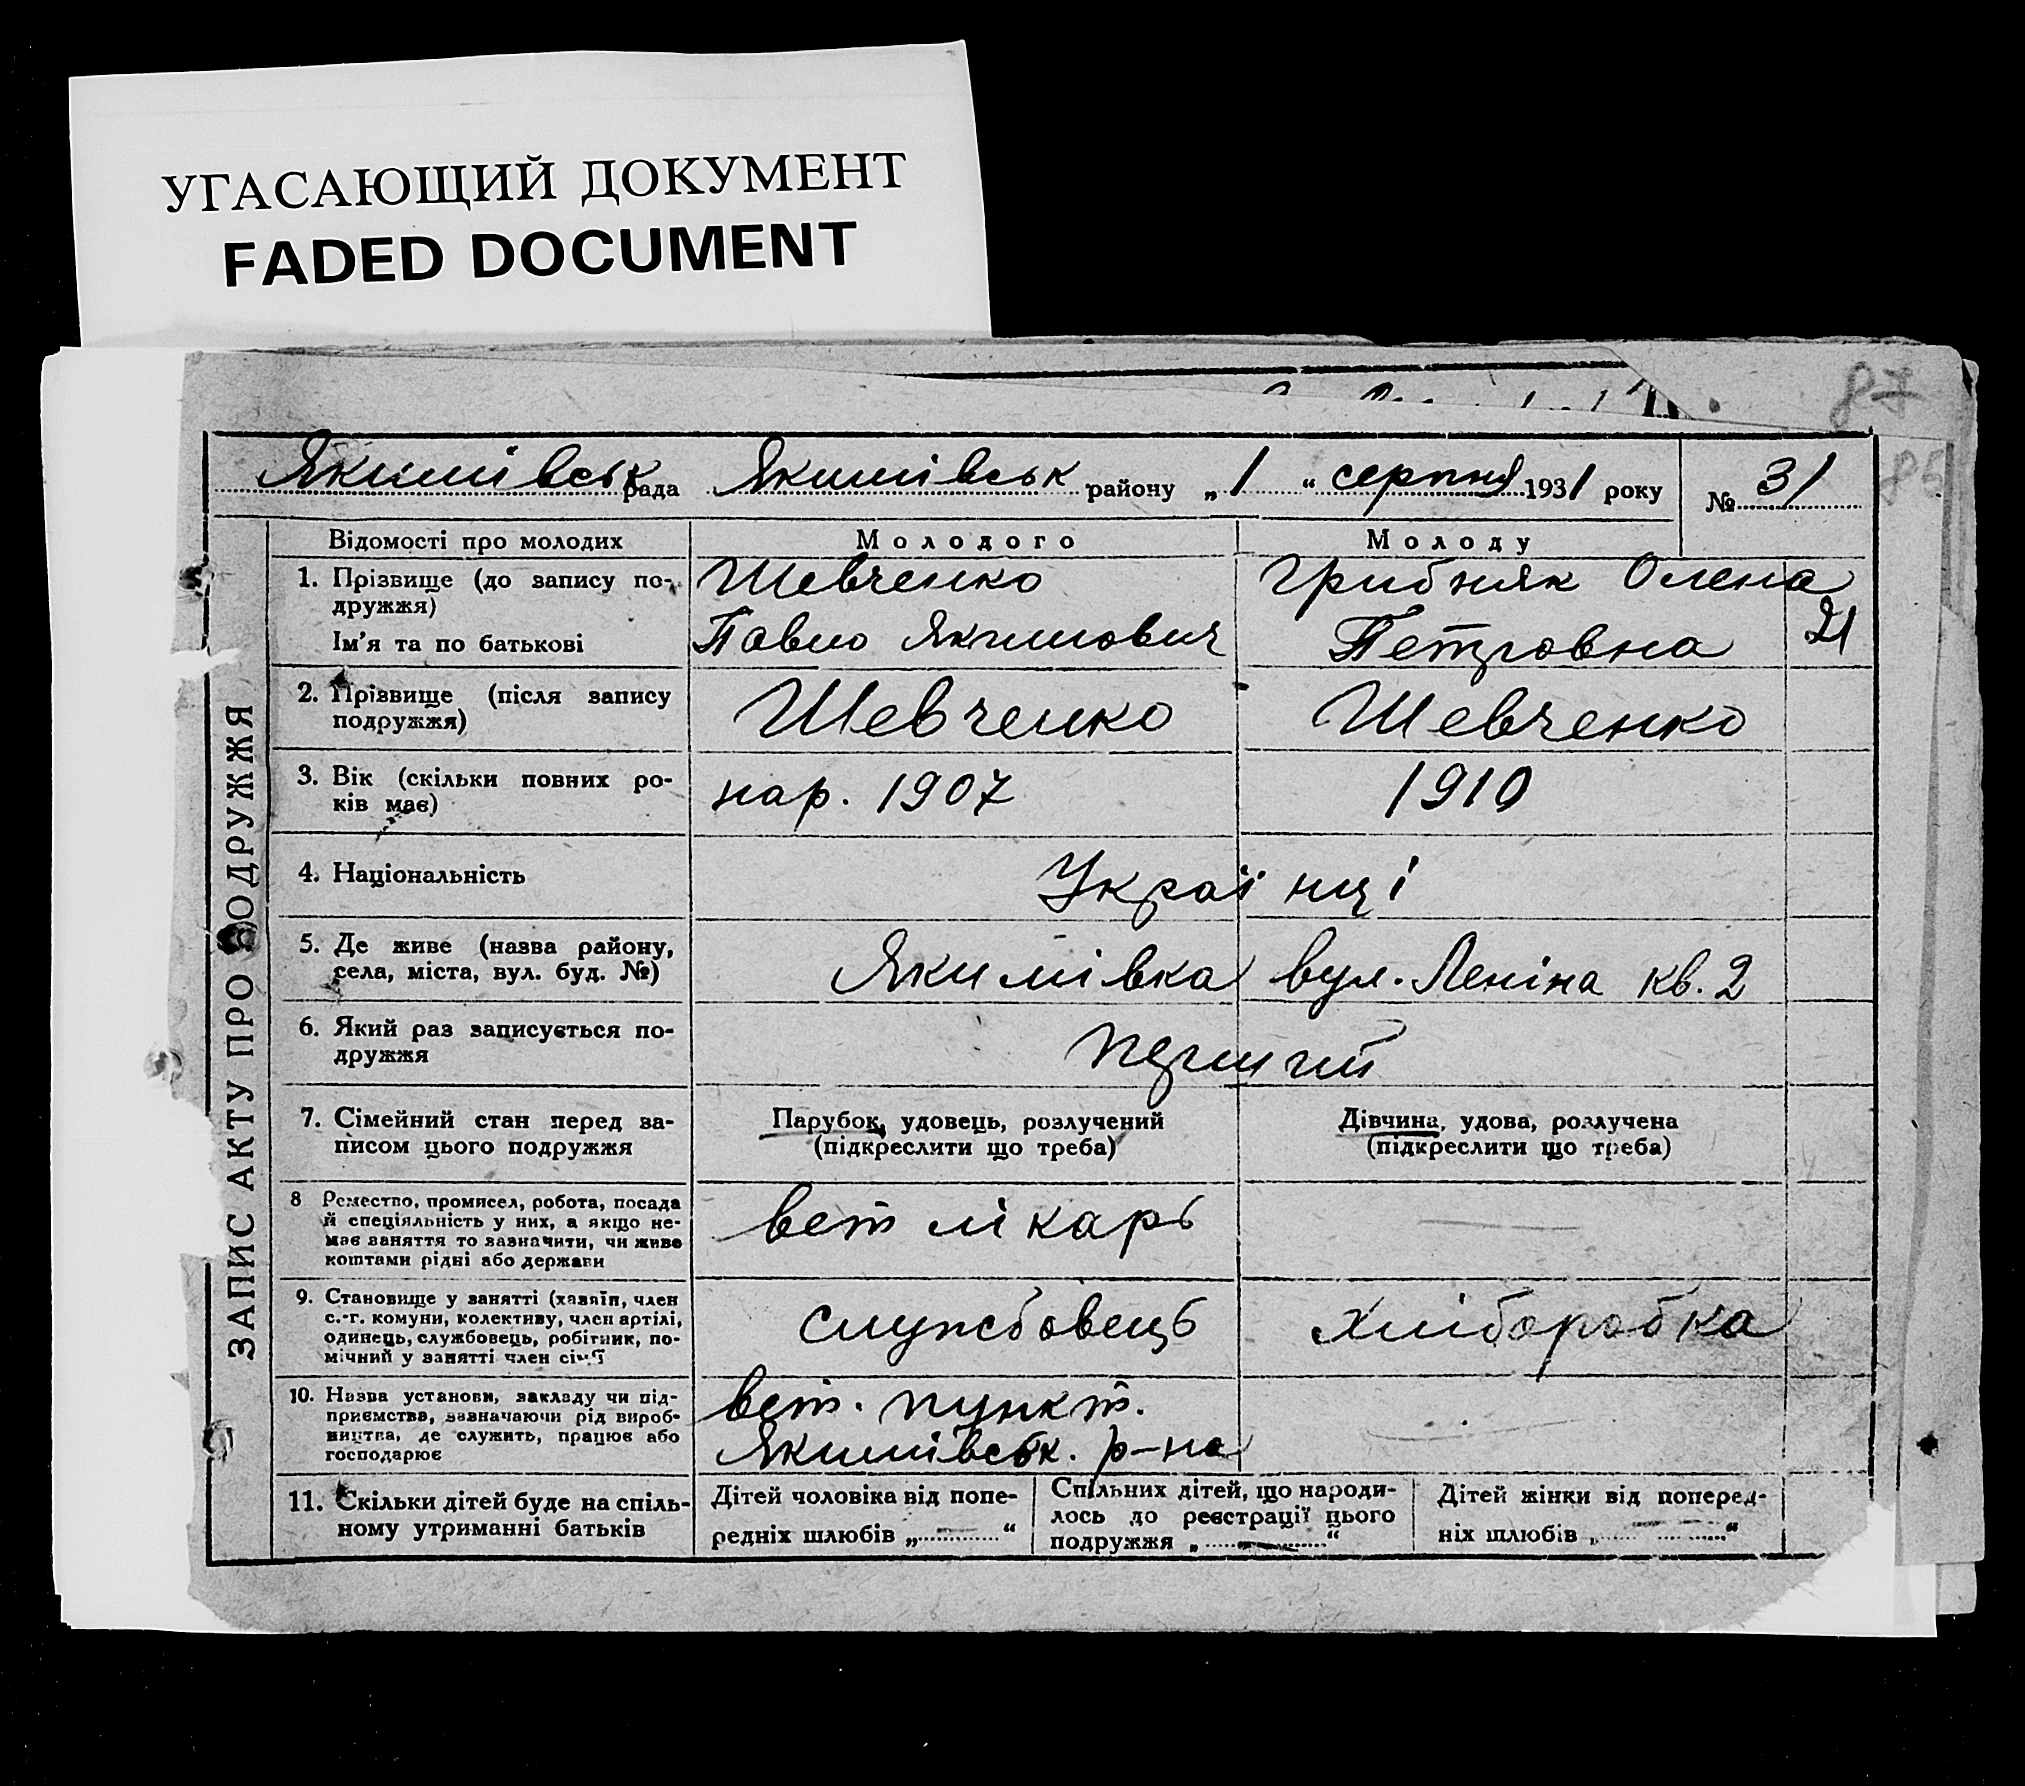 УГАСАЮЩИЙ ДОКУМЕНТ
FADED DOCUMENT
87
86
Якимівськ рада Якимівськ району „ 1 “ серпня 1931 року № 31
ЗАПИС АКТУ ПРО ПОДРУЖЖЯ
Відомості про молодих Молодого Молоду
1. Прізвище (до запису по- Шевченко Грибняк Олена
дружжя)
Ім'я та по батькові Павло Якимович Петровна 21
2. Прізвище (після запису
подружжя) Шевченко Шевченко
3. Вік (скільки повних ро-
ків має) нар. 1907 1910
4. Національність Українці
5. Де живе (назва району,
села, міста, вул. буд. №) Якимівка вул. Леніна кв. 2
6. Який раз записується по-
дружжя перший
7. Сімейний стан перед за- Парубок, удовець, розлучений Дівчина, удова, розлучена
писом цього подружжя (підкреслити що треба) (підкреслити що треба)
8 Ремество, промисел, робота, посада
й спеціяльність у них, а якщо не- вет лікарь
має заняття то зазначити, чи живе
коштами рідні або держави
9. Становище у занятті (хазяїн, член
с.-г. комуни, колективу, член артілі, службовець хліборобка
одинець, службовець, робітник, по-
мічний у занятті член сім'ї
10. Назва установи, закладу чи під- вет. пункт.
приємства, зазначаючи рід вироб-
ництва, де служить, працює або Якимівськ. р-на
господарює
11. Скільки дітей буде на спіль- Дітей чоловіка від попе- Спільних дітей, що народи- Дітей жінки від поперед-
ному утриманні батьків редніх шлюбів „ “ лось до реєстрації цього ніх шлюбів „ “
подружжя „ “